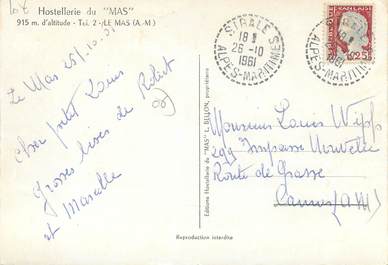 Hostellerie du "MAS"
915 m. d'altitude - Tel. 2 - LE MAS (A.-M.)
Le Mas 25/10-61
Cher petit Louis
Grosses bises de Robert
et Marcelle
Editions Hostellerie du "MAS" L. BELLON, propriétaire
Reproduction interdite
18 H
26-10
1961
ALPES-MARITIMES
ALPES-MARITIMES
0,25
Monsieur Louis
299 Impasse Nouvelle
Route de Grasse
Cannes (A M)